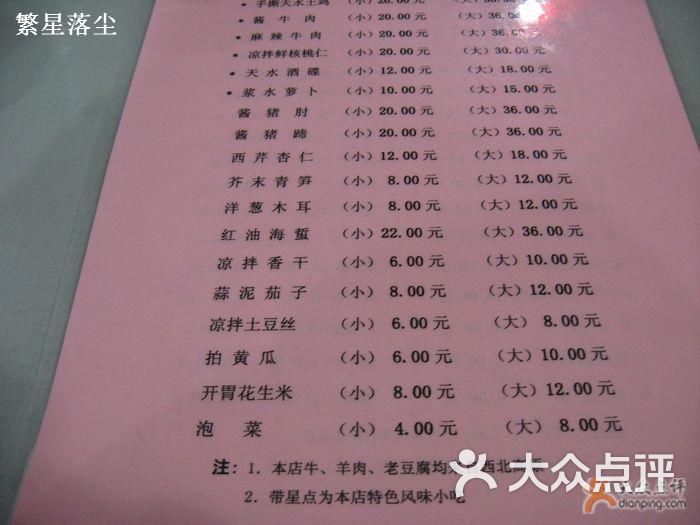 繁星落尘
• 手撕天水土鸡 （小）26.00 元
酱牛肉 （小）20.00 元 （大）36.00 元
• 麻辣牛肉 （小）20.00 元 （大）36.00 元
• 凉拌鲜核桃仁 （小）20.00 元 （大）30.00 元
• 天水酒碟 （小）12.00 元 （大）18.00 元
• 浆水萝卜 （小）10.00 元 （大）15.00 元
酱猪肘 （小）20.00 元 （大）36.00 元
酱猪蹄 （小）20.00 元 （大）36.00 元
西芹杏仁 （小）12.00 元 （大）18.00 元
芥末青笋 （小）8.00 元 （大）12.00 元
洋葱木耳 （小）8.00 元 （大）12.00 元
红油海蜇 （小）22.00 元 （大）36.00 元
凉拌香干 （小）6.00 元 （大）10.00 元
蒜泥茄子 （小）8.00 元 （大）12.00 元
凉拌土豆丝 （小）6.00 元 （大）8.00 元
拍黄瓜 （小）6.00 元 （大）10.00 元
开胃花生米 （小）8.00 元 （大）12.00 元
泡菜 （小）4.00 元 （大）8.00 元
注：1. 本店牛、羊肉、老豆腐均 西北
2. 带星点为本店特色风味小吃
大众点评
dianping.com